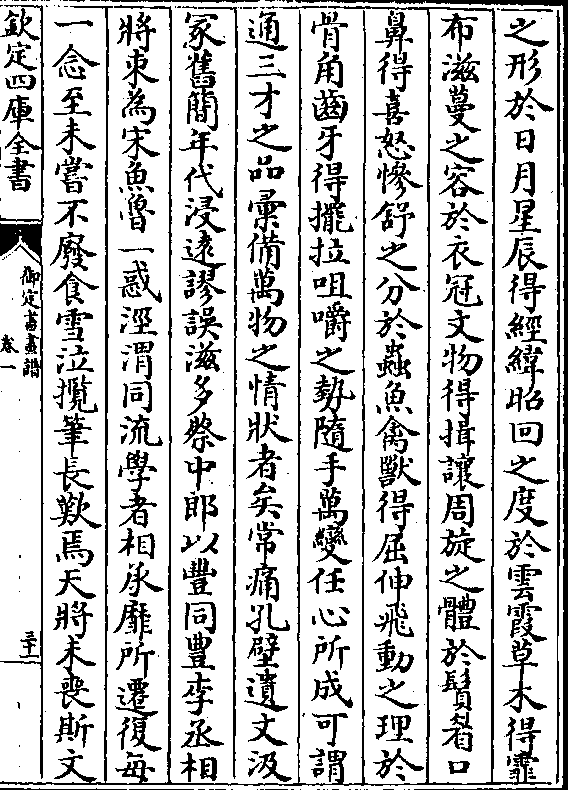 之形於日月星辰得經緯昭回之度於雲霞草木得霏
布滋蔓之容於衣冠文物得揖讓周旋之體於鬚眉口
鼻得喜怒慘舒之分於蟲魚禽獸得屈伸飛動之理於
骨角齒牙得擺拉咀嚼之勢隨手萬變任心所成可謂
通三才之品彚備萬物之情狀者矣常痛孔壁遺文汲
冢舊簡年代浸遠謬誤滋多蔡中郎以豐同豊李丞相
將束為宋魚魯一惑涇渭同流學者相承靡所遷復每
一念至未嘗不廢食雪泣攬筆長歎焉天將未喪斯文
欽定四庫全書
御定書畫譜
卷一